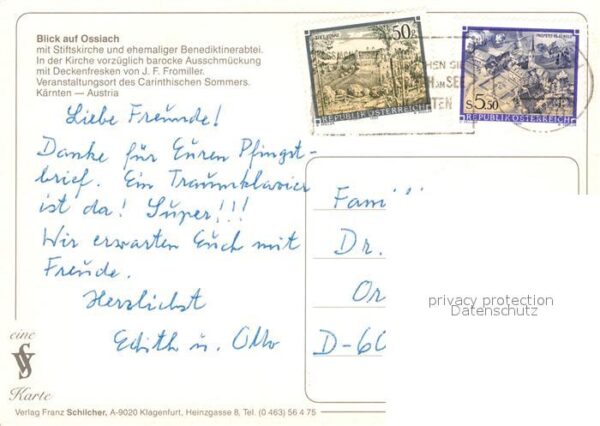 Blick auf Ossiach
mit Stiftskirche und ehemaliger Benediktinerabtei.
In der Kirche vorzüglich barocke Ausschmückung
mit Deckenfresken von J. F. Fromiller.
Veranstaltungsort des Carinthischen Sommers.
Kärnten — Austria
50g
REPUBLIK ÖSTERREICH
S 5.50
REPUBLIK ÖSTERREICH
Liebe Freunde!
Danke für Euren Pfingst-
brief. Ein Traumklavier
ist da! Super!!!
Wir erwarten Euch mit
Freude.
Herzlichst
Edith u. Otto
Fami
Dr.
Or
D-60
privacy protection
Datenschutz
eine
Karte
Verlag Franz Schilcher, A-9020 Klagenfurt, Heinzgasse 8, Tel. (0 463) 56 4 75